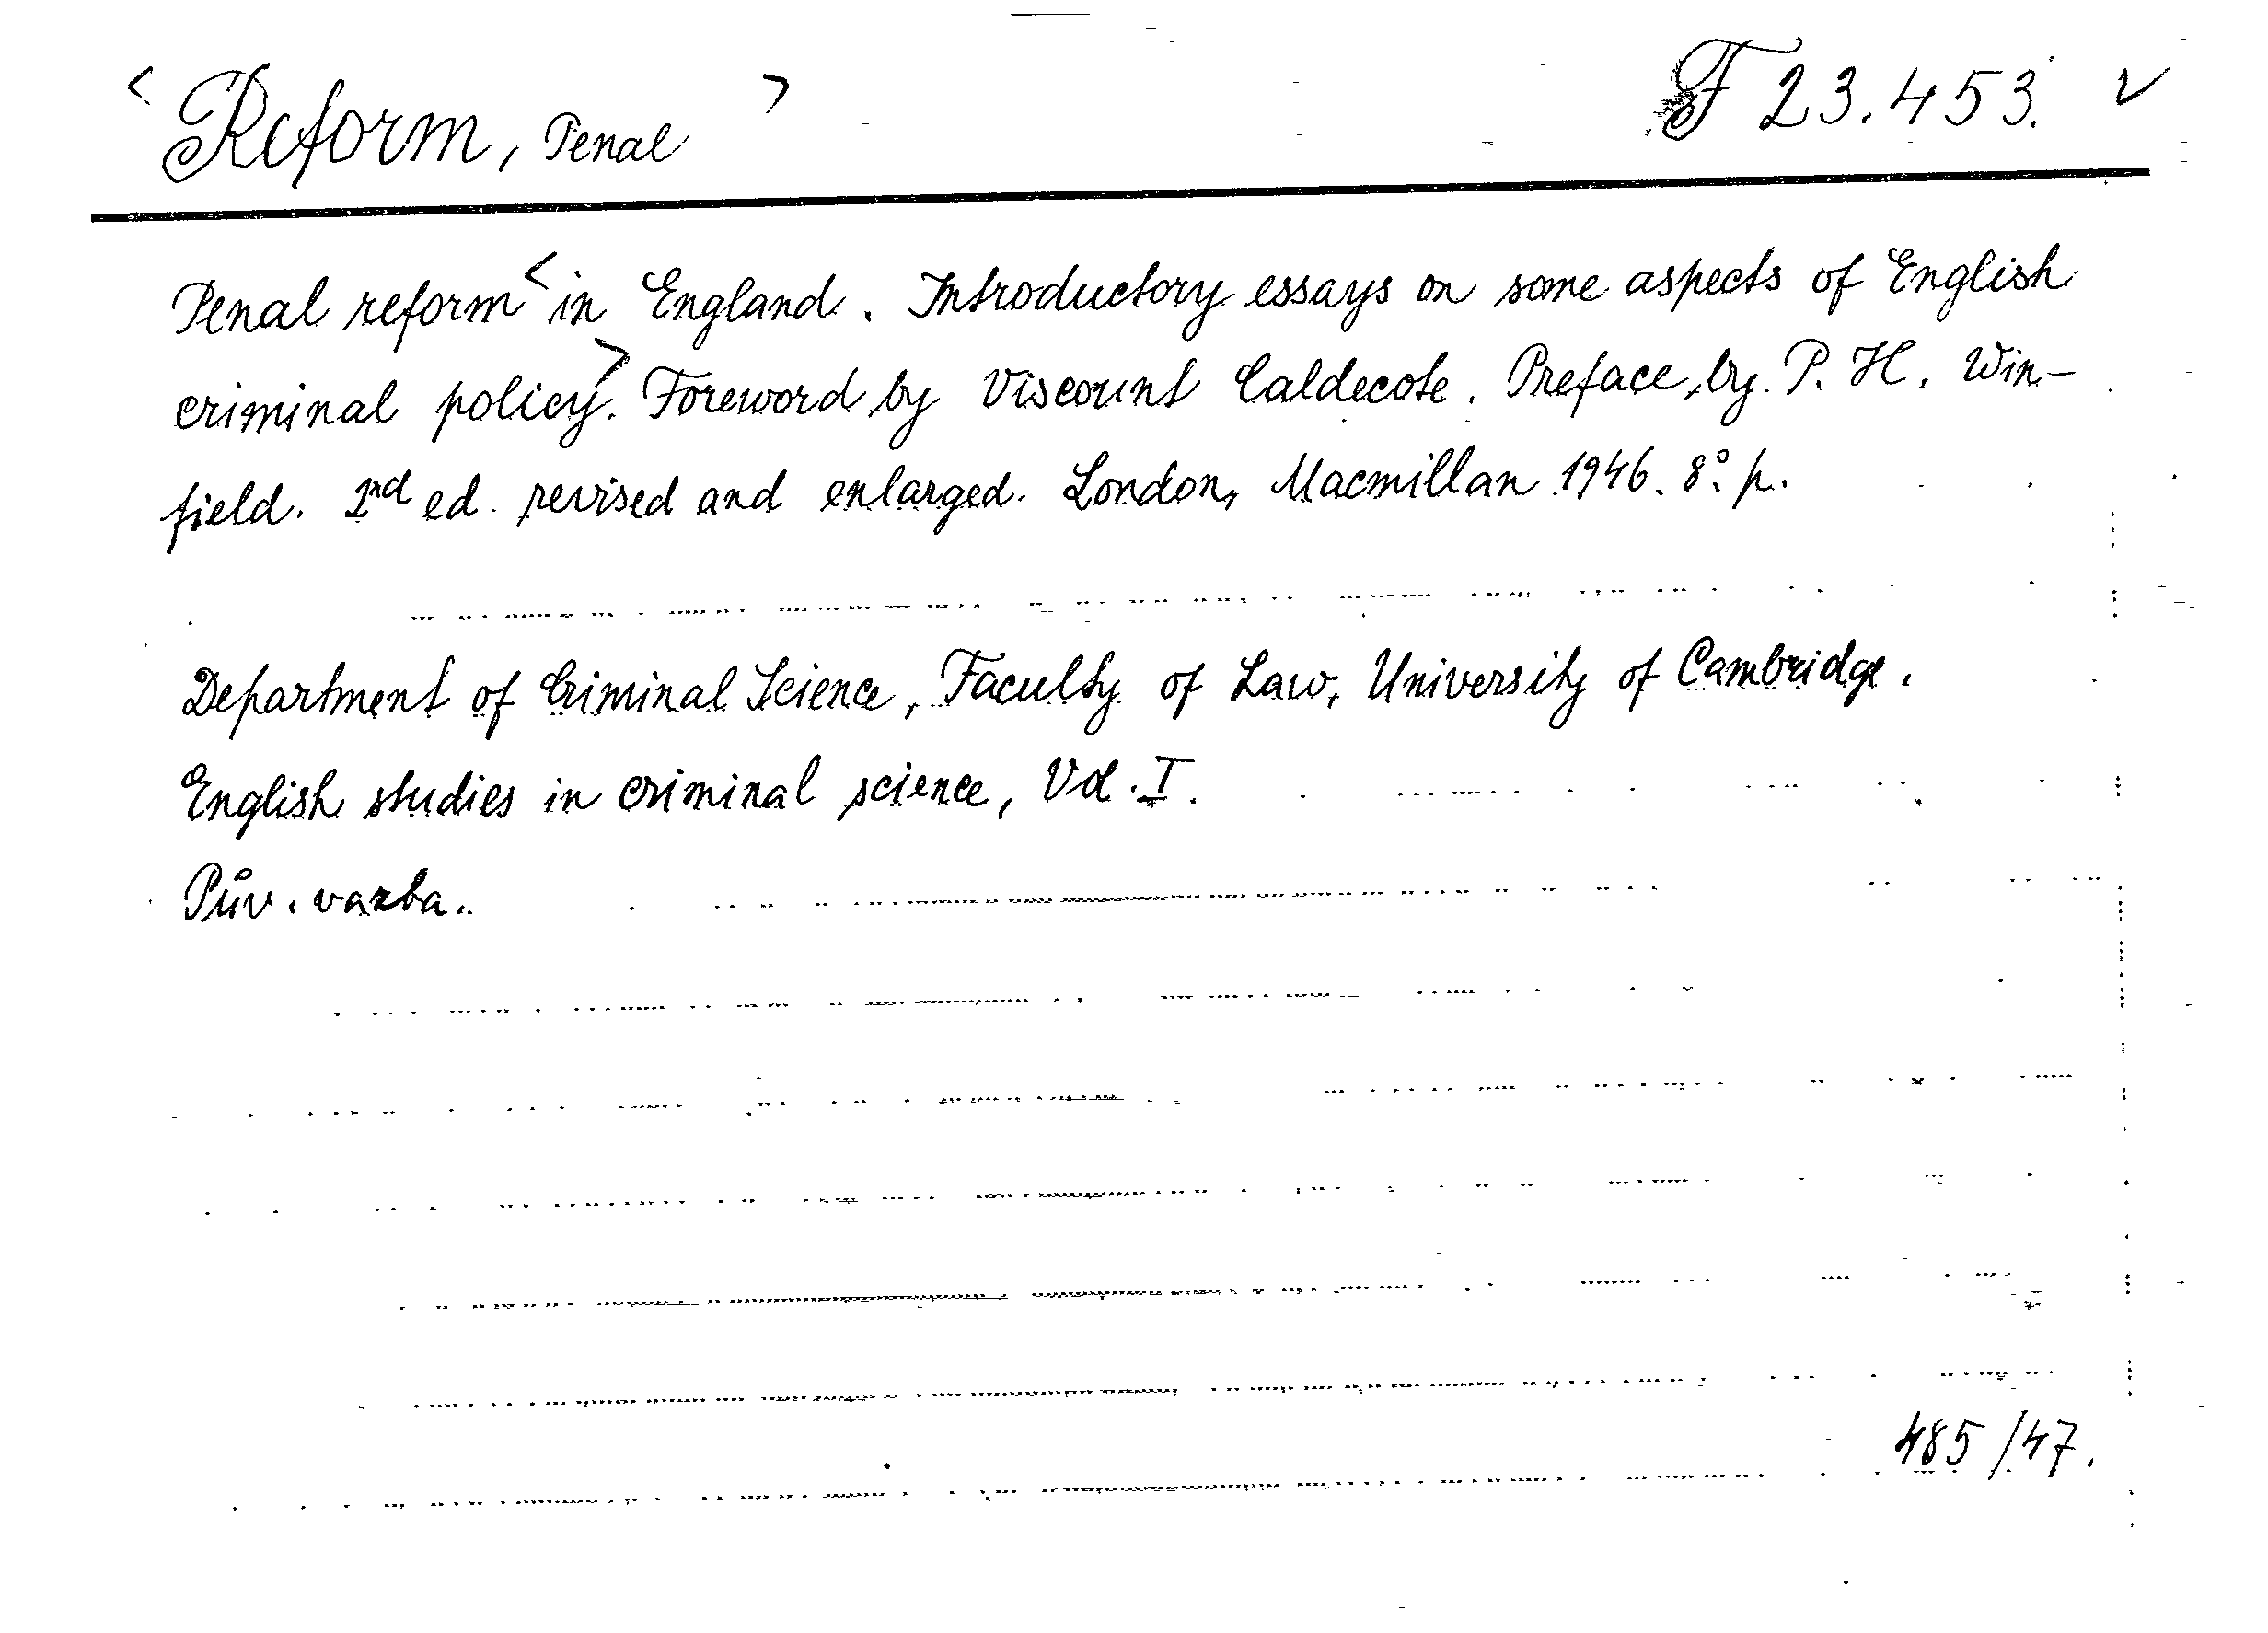 < Reform, Penal > F 23.453. ✓
Penal reform < in England. Introductory essays on some aspects of English
criminal policy >. Foreword by Viscount Caldecote. Preface by P. H. Win-
field. 2nd ed. revised and enlarged. London, Macmillan 1946. 8° p.
Department of Criminal Science, Faculty of Law, University of Cambridge.
English studies in criminal science, Vol. I.
Pův. vazba.
485/47.